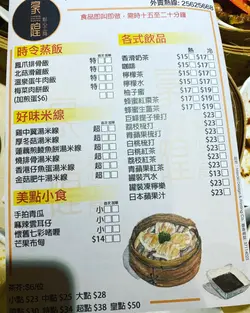 外賣熱線: 25625668
食品即叫即做，需時十五至二十分鐘
時令蒸飯
鳳爪排骨飯 特
北菇滑雞飯 特
溫室蛋牛肉飯 特
梅菜肉餅飯 特
(加煎蛋$6)
好味米線
雞中翼湯米線 超
厚冬菇湯米線 超
蓮藕煎鯪魚餅湯米線 超
燒排骨湯米線 超
香港仔魚蛋湯米線 超
金菇肥牛湯米線 超
美點小食
手拍青瓜 小
麻辣雲耳仔 小
懷舊七彩啫喱 小
芒果布甸 $14
各式飲品
熱 冷
香滑奶茶 $15 $17
咖啡 $15 $17
檸檬茶 $15 $17
檸檬水 $15 $17
柚子蜜 $15 $17
蜂蜜紅棗茶 $15 $17
蜂蜜青檸茶 $19
巨峰提子梳打 $23
荔枝梳打 $23
青蘋果梳打 $23
白桃梳打 $23
白桃紅茶 $23
荔枝紅茶 $23
青蘋果紅茶 $23
罐裝汽水 $23
罐裝凍檸樂 $23
日本蘋果汁 $23
茶芥: $6/位
小點 $23 中點 $25 大點 $28
特點 $34 超點 $38 皇點 $50